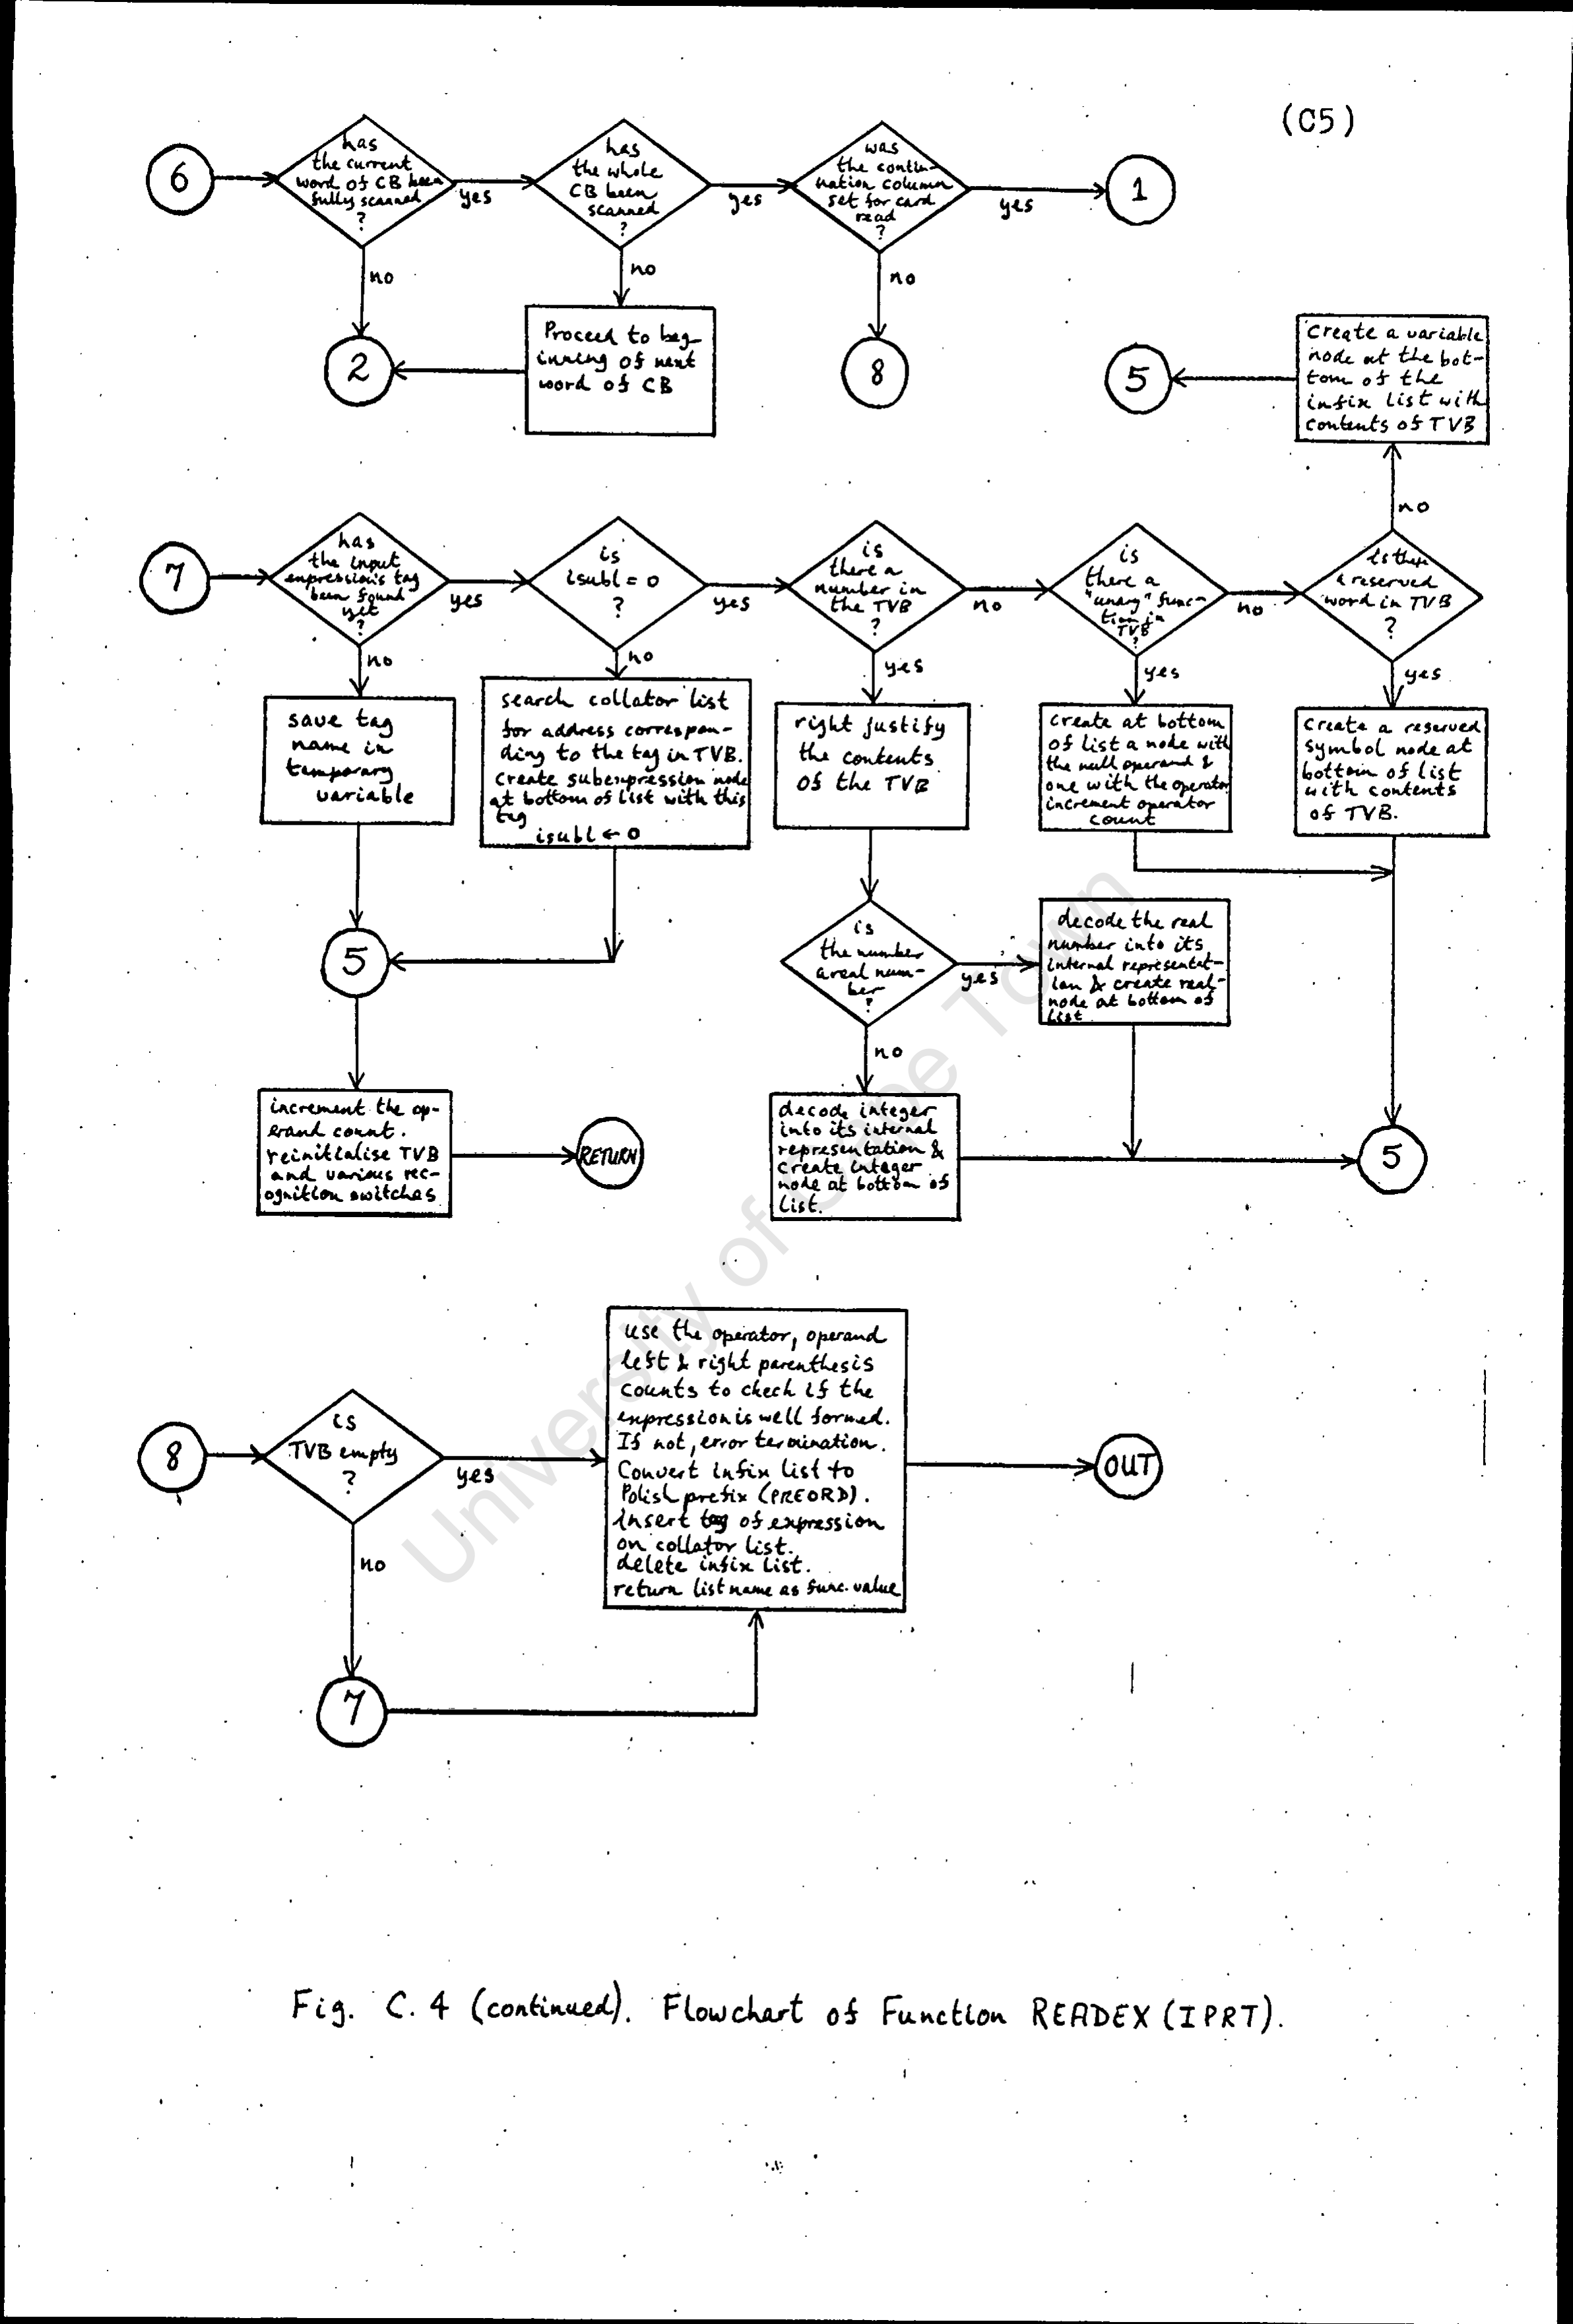 (C5)
6
has
the current
word of CB been
fully scanned
?
yes
no
has
the whole
CB been
scanned
?
yes
no
was
the conti-
nuation column
set for card
read
?
yes
no
1
2
Proceed to beg-
inning of next
word of CB
8
5
Create a variable
node at the bot-
tom of the
infix list with
contents of TVB
no
7
has
the input
expression's tag
been found
yet
?
yes
no
is
isubl = 0
?
yes
no
is
there a
number in
the TVB
?
no
yes
is
there a
"unary" func-
tion in
TVB
?
no
yes
is there
a reserved
word in TVB
?
yes
save tag
name in
temporary
variable
search collator list
for address correspon-
ding to the tag in TVB.
create subexpression node
at bottom of list with this
tag
isubl ← 0
right justify
the contents
of the TVB
create at bottom
of list a node with
the null operand &
one with the operator
increment operator
count
Create a reserved
symbol node at
bottom of list
with contents
of TVB.
5
is
the number
a real num-
ber
?
yes
no
decode the real
number into its
internal representat-
ion & create real-
node at bottom of
list
increment the op-
erand count.
reinitialise TVB
and various rec-
ognition switches
RETURN
decode integer
into its internal
representation &
create integer
node at bottom of
list.
5
8
is
TVB empty
?
yes
no
use the operator, operand
left & right parenthesis
counts to check if the
expression is well formed.
If not, error termination.
Convert infix list to
Polish prefix (PREORD).
insert tag of expression
on collator list.
delete infix list.
return list name as func. value
OUT
7
Fig. C.4 (continued). Flowchart of Function READEX (IPRT).
University of Cape Town